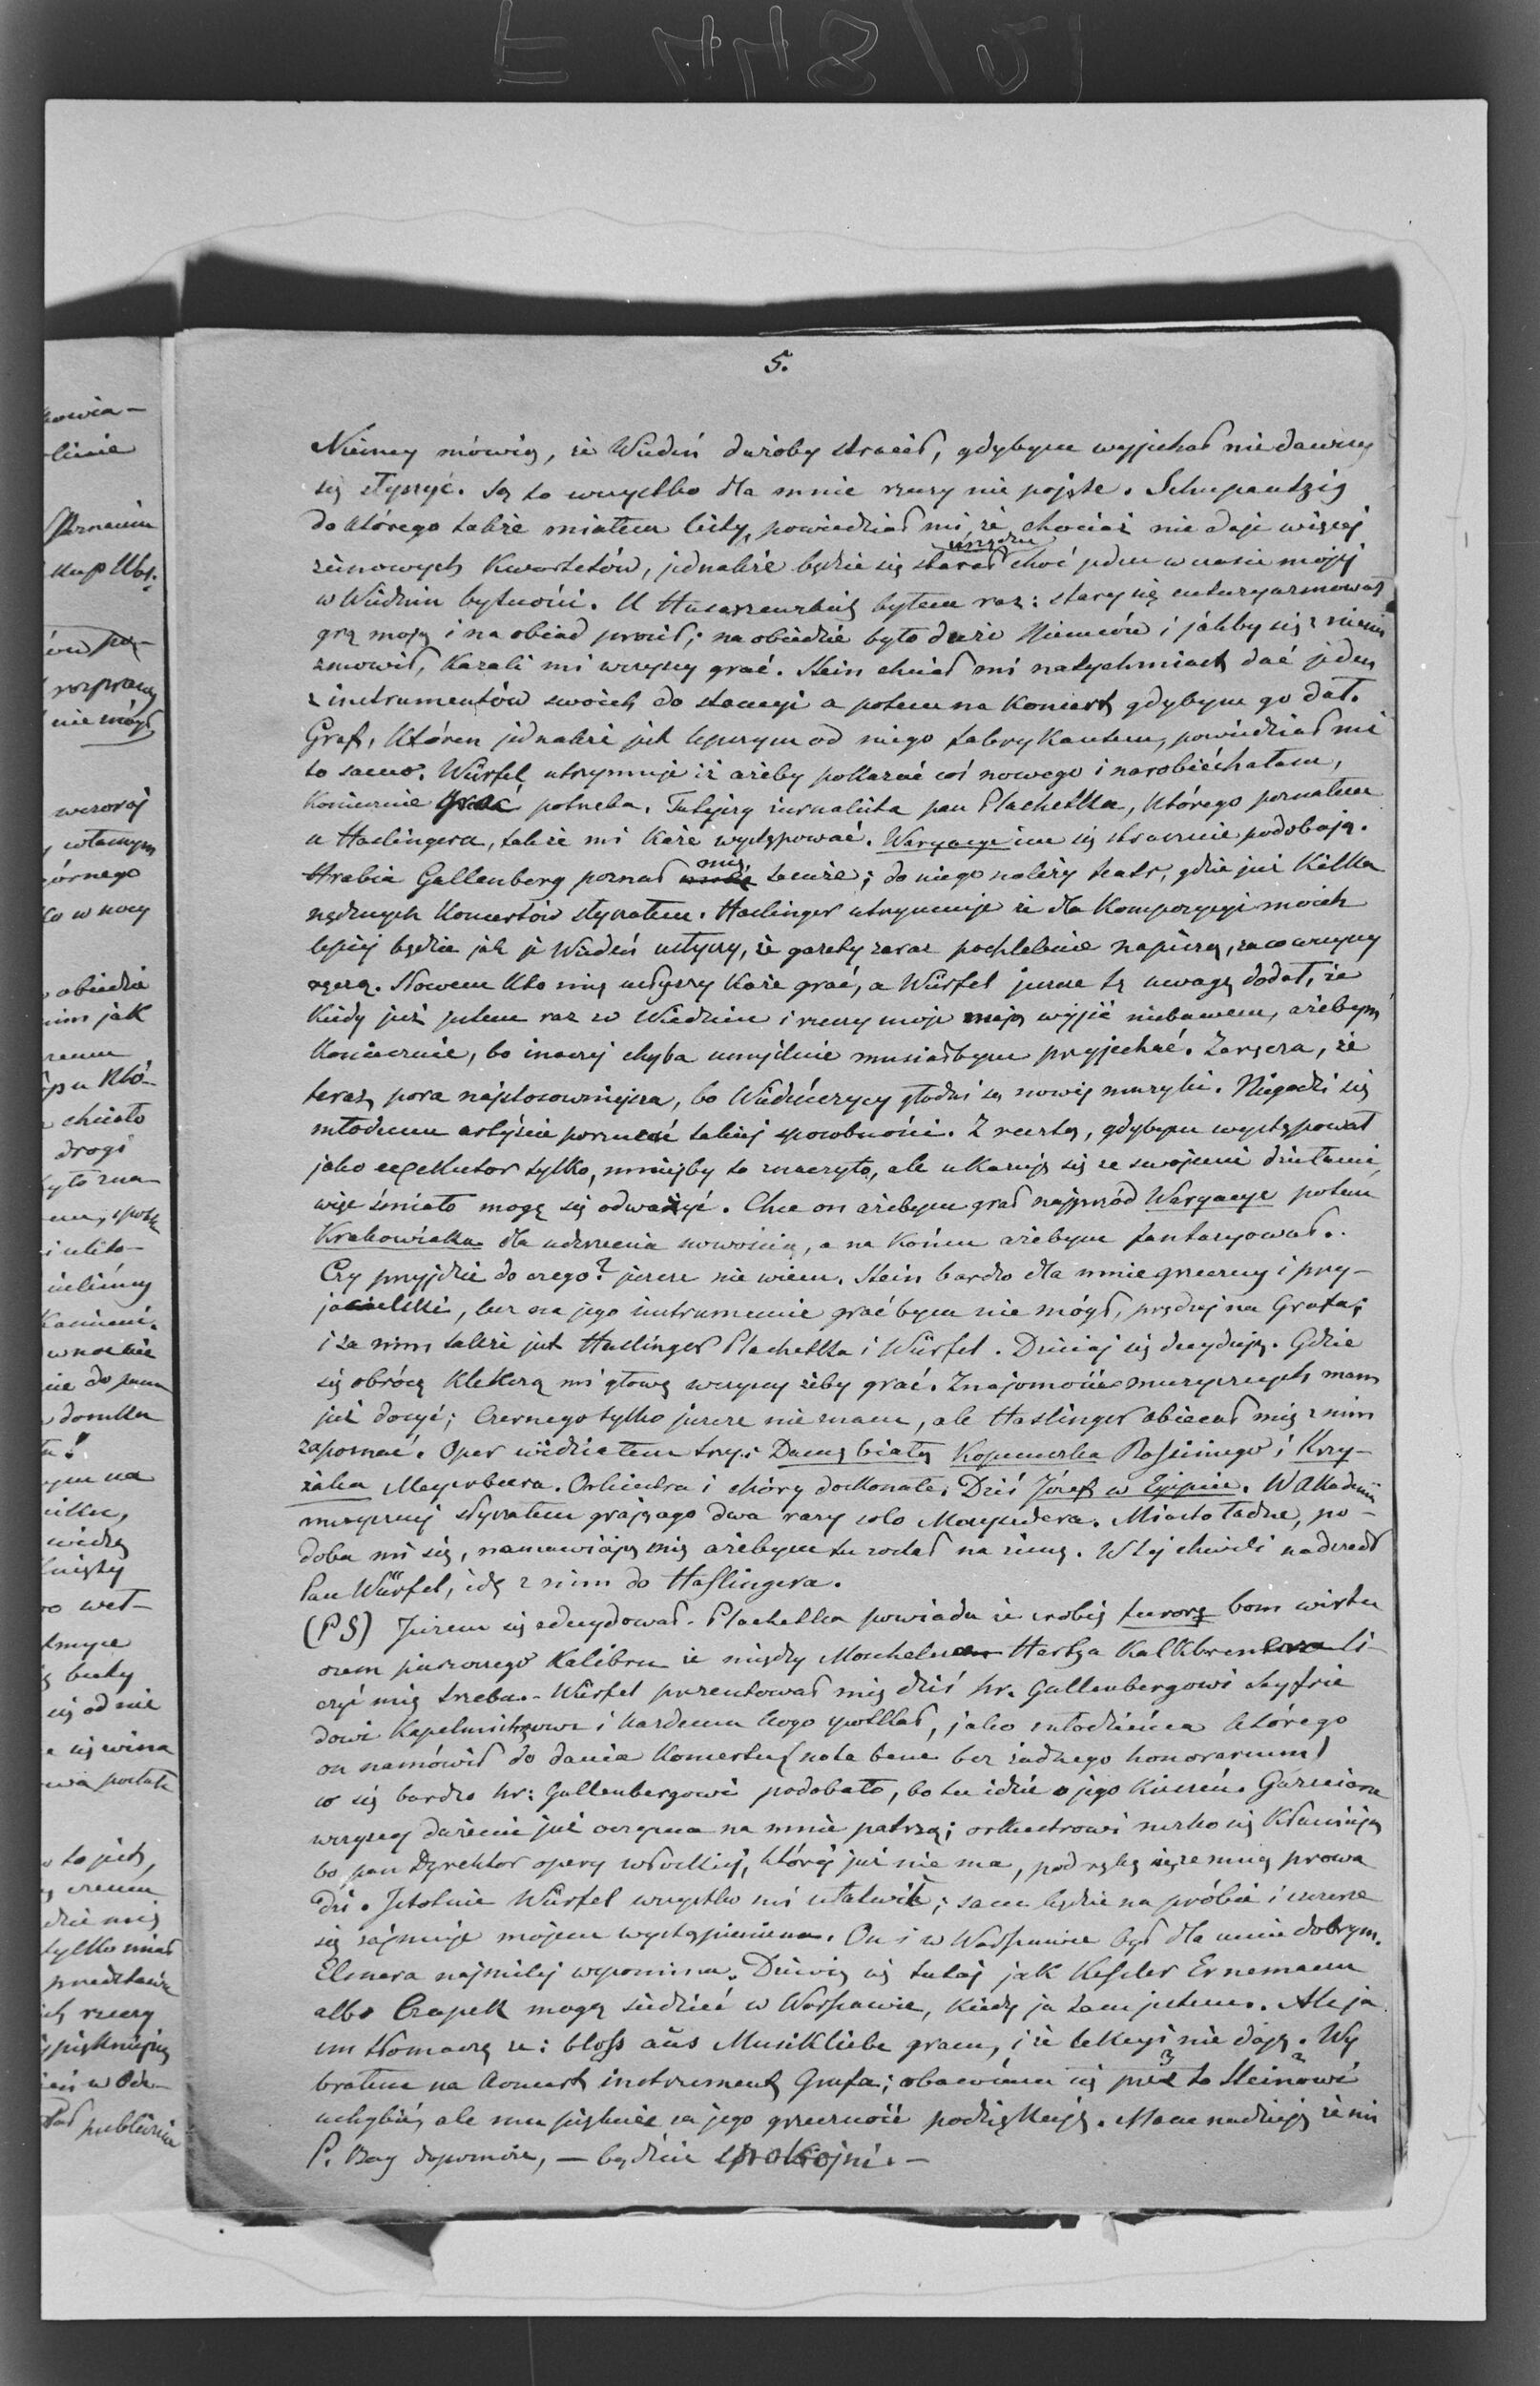 5.
Niemcy mówią, że Wiedeń dużoby stracił, gdybym wyjechał nie dawszy
się słyszyć. Są to wszystko dla mnie rzeczy nie pojęte. Schupantzig
do którego także miałem listy, powiedział mi, że chociaż nie daje więcej
urządzić
zimowych Kwartetów, jednakże będzie się starał choć jeden w czasie mojej
w Wiedniu bytności. U Husarzewskich byłem raz: stary się entuzyazmował
grą moją i na obiad prosił; na obiedzie było dużo Niemców i jakby się z niemi
zmowił, Kazali mi wszyscy grać. Stein chciał mi natychmiast dać jeden
z instrumentów swoich do stancyi a potem na Koncert gdybym go dał.
Graf, któren jednakże jest lepszym od niego fabrykantem, powiedział mi
to samo. Würfel utrzymuje iż ażeby pokazać coś nowego i narobić hałasu,
Koniecznie grać potrzeba. Tutejszy żurnalista pan Blachetka, którego poznałem
u Haslingera, także mi każe występować. Waryacye im się strasznie podobają.
mię
Hrabia Gallenberg poznał także; do niego należy teatr, gdzie już Kilka
nędznych Koncertów słyszałem. Haslinger utrzymuje że dla Kompozycyi moich
lepiej będzie jak je Wiedeń usłyszy, że gazety zaraz pochlebnie napiszą, za co wszyscy
ręczą. Słowem kto mię usłyszy każe grać, a Würfel jeszcze tę uwagę dodał, że
Kiedy już jestem raz w Wiedniu i rzeczy moje mają wyjść niebawem, ażebym
Koniecznie, bo inaczej chyba umyślnie musiałbym przyjechać. Zaręcza, że
teraz pora najstosowniejsza, bo Wiedeńczycy głodni są nowej muzyki. Niegodzi się
młodemu artyście porzucać takiej sposobności. Z resztą, gdybym występował
jako exekutor tylko, mniejby to znaczyło, ale ukazuję się ze swojemi dziełami
więc śmiało mogę się odważyć. Chce on ażebym grał najprzód Waryacye potem
Krakowiaka dla uderzenia nowością, a na Końcu ażebym fantazyował.
Czy przyjdzie do czego? jeszcze nie wiem. Stein bardzo dla mnie grzeczny i przy-
jacielski, lecz na jego instrumencie grać bym nie mógł, prędzej na Grafa;
i za nim także jest Haslinger Blachetka i Würfel. Dzisiaj się decyduję. Gdzie
się obrócę Klekczą mi głowę wszyscy żeby grać. Znajomości muzycznych mam
już dosyć; Czernego tylko jeszcze nie znam, ale Haslinger obiecał mię z nim
zapoznać. Oper widziałem trzy: Damę białą Kopciuszka Rossiniego i Krzy-
żaka Meyerbeera. Orkiestra i chóry doskonałe, Dziś Józef w Egipcie. W Akademii
muzycznej słyszałem grającego dwa razy solo Mayzedera. Miasto ładne, po-
doba mi się, namawiają mię ażebym tu został na zimę. W tej chwili nadszedł
Pan Würfel, idę z nim do Haslingera.
(PS) Jużem się zdecydował. Blachetka powiada że zrobię furorę bom wirtu
ozem pierwszego Kalibru że między Mochelesem Hertza Kalkbrennera li-
czyć mię trzeba. Würfel prezentował mię dziś hr. Gallenbergowi Seyfrie
dowi Kapelmistrzowi i każdemu kogo spotkał, jako młodzieńca którego
on namówił do dania Koncertu (nota bene bez żadnego honorarium)
co się bardzo hr: Gallenbergowi podobało, bo tu idzie o jego Kieszeń. Gazeciarze
wszyscy dużemi już oczyma na mnie patrzą; orkiestrowi nizko się Kłaniają
bo pan Dyrektor opery włoskiej, której już nie ma, pod rękę się ze mną prowa
dzi. Istotnie Würfel wszystko mi ułatwił; sam będzie na próbie i szczerze
się zajmuje mojem wystąpieniem. On i w Warszawie był dla mnie dobrym.
Elsnera najmilej wspomina. Dziwią się tutaj jak Kessler Ernemann
albo Czapek mogą siedzieć w Warszawie, Kiedy ja tam jestem. Ale ja
im tłomaczę że: bloss aus Musikliebe gram, i że lekcyi nie daję. Wy
brałem na Koncert instrument Grafa; obawiam się przez to Steinowi
uchybić, ale mu pięknie za jego grzeczność podziękuję. Mam nadzieję że mi
P. Bóg dopomoże, — bądźcie spokojni. —